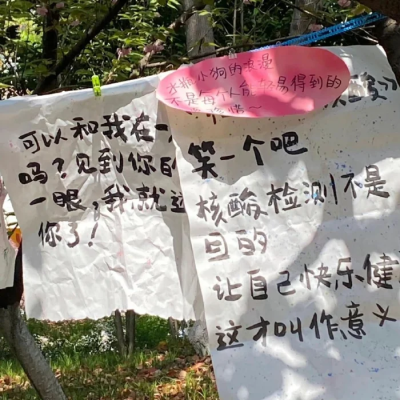 可以和我在一
吗?见到你的
一眼,我就
你了!
小狗的浪漫
不是每个人 易得到的
笑一个吧
核酸检测不是
目的
让自己快乐健
这才叫作意义